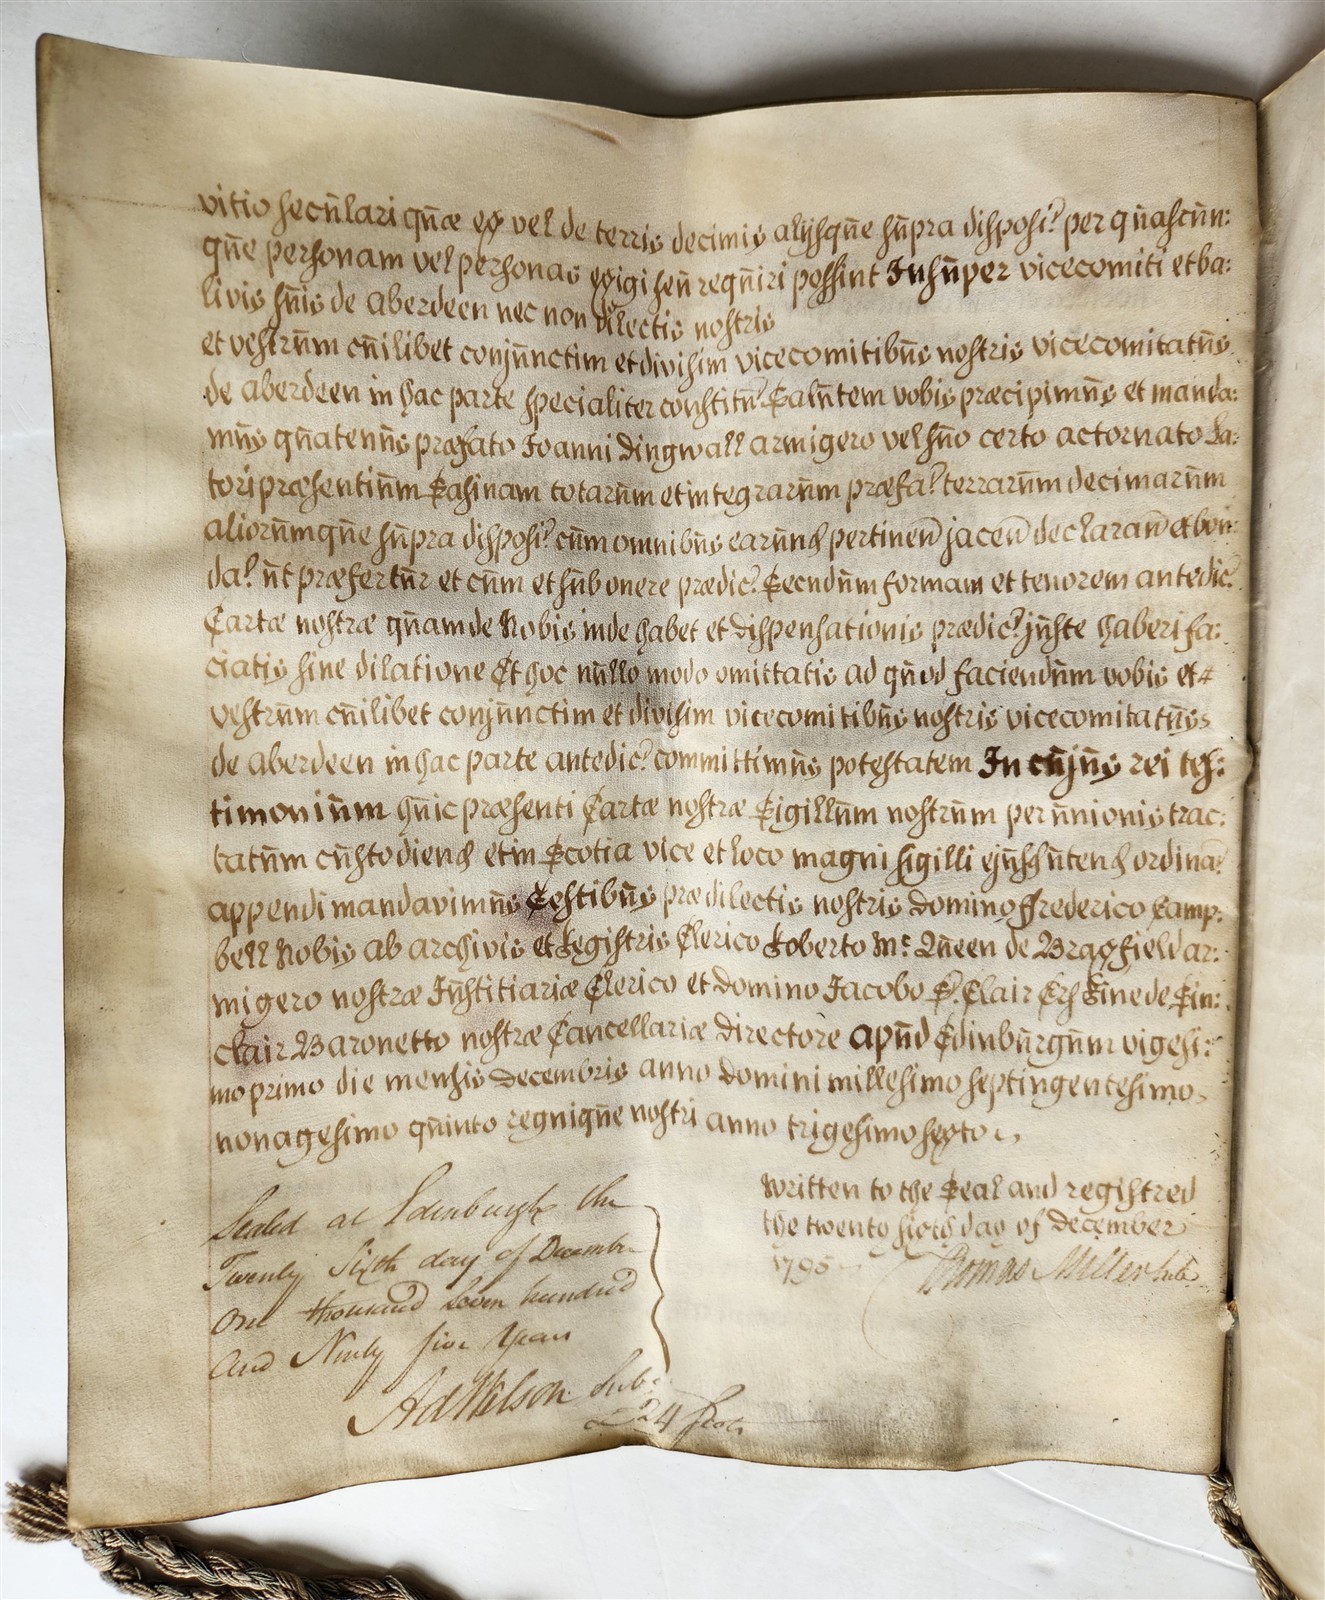 vitio seculari quæ ex vel de terris decimis alijsque supra disposi: per quascun:
que personam vel personas exigi seu requiri possint Insuper vicecomiti et ba:
livis suis de aberdeen nec non dilectis nostris
et vestrum cuilibet conjunctim et divisim vicecomitibus nostris vicecomitatus
de aberdeen in hac parte specialiter constitu: Salutem vobis præcipimus et manda:
mus quatenus præfato Joanni Dingwall armigero vel suo certo actornato La:
tori præsentium Sasinam totarum et integrarum præfa: terrarum decimarum
aliorumque supra disposi: cum omnibus earund pertinen jacen declaran et bon:
da: ut præfertur et cum et sub onere prædic: Secundum formam et tenorem antedic:
Cartæ nostræ quam de Nobis inde habet et dispensationis prædic: juste haberi fa:
ciatis sine dilatione Et hoc nullo modo omittatis ad quod faciendum vobis et
vestrum cuilibet conjunctim et divisim vicecomitibus nostris vicecomitatus
de aberdeen in hac parte antedic: committimus potestatem In cujus rei tes:
timonium huic præsenti Cartæ nostræ Sigillum nostrum per unionis trac:
tatum custodiend et in Scotia vice et loco magni sigilli ejusd utend ordina:
appendi mandavimus Testibus prædilectis nostris domino Frederico Camp:
bell Nobis ab archivis et Registris Clerico Roberto Mc Queen de Braxfield ar:
migero nostræ Justitiariæ Clerico et domino Jacobo St. Clair Erskine de Sin:
clair Baronetto nostræ Cancellariæ directore apud Edinburgum vigesi:
mo primo die mensis decembris anno domini millesimo septingentesimo
nonagesimo quinto regnique nostri anno trigesimo sexto
Written to the Seal and registred
the twenty sixth day of December
1795 Thomas Miller Sub
Sealed at Edinburgh the
Twenty Sixth day of December
One thousand Seven hundred
And Ninty five Years
Ad Wilson Sub:
£24 Scots